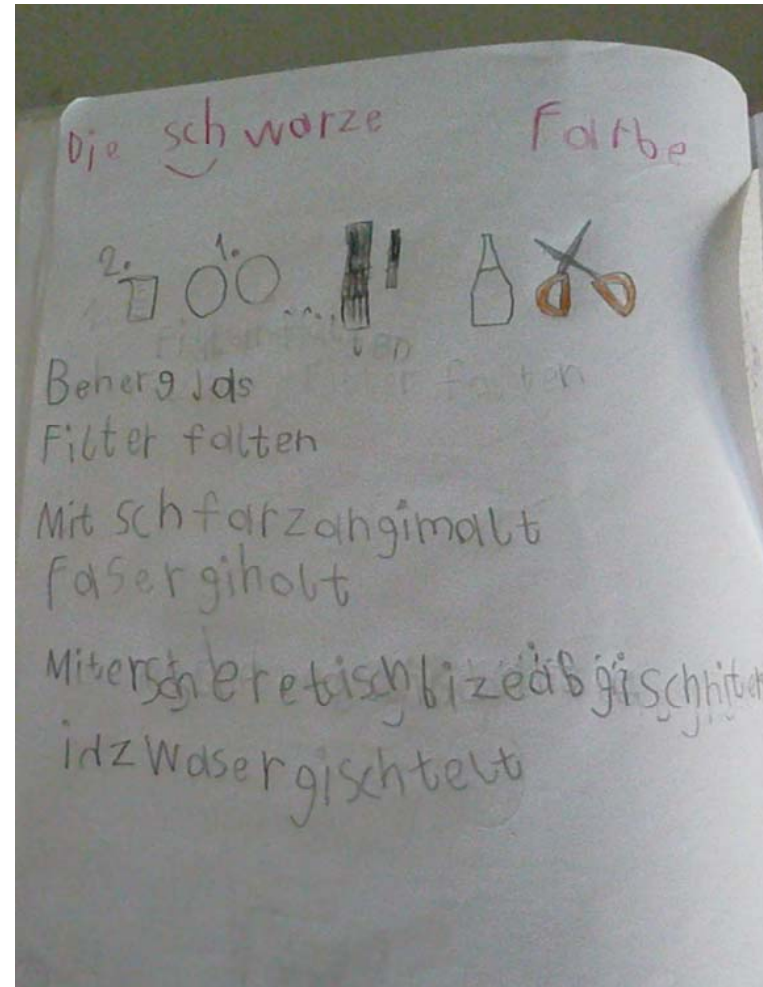 Die schwarze Farbe
2. 1.
Beherglas
Filter falten
Mit schfarzangimalt
fasergiholt
Miterscheretischbizeabgischniten
inzwasergischtelt